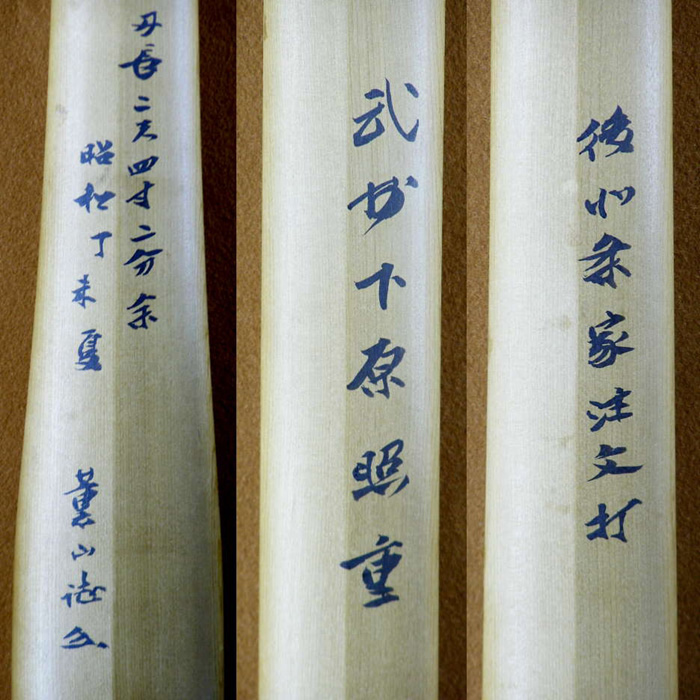 刃長二尺四寸二分余
昭和丁未夏 薫山誌
武州下原照重
後北条家注文打